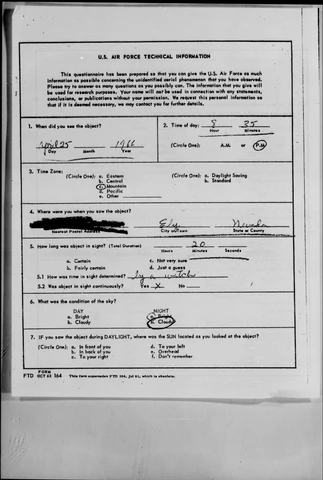 U.S. AIR FORCE TECHNICAL INFORMATION
This questionnaire has been prepared so that you can give the U.S. Air Force as much
information as possible concerning the unidentified aerial phenomenon that you have observed.
Please try to answer as many questions as you possibly can. The information that you give will
be used for research purposes. Your name will not be used in connection with any statements,
conclusions, or publications without your permission. We request this personal information so
that if it is deemed necessary, we may contact you for further details.
1. When did you see the object?
April 25 1966
Day Month Year
2. Time of day: 8 35
Hour Minutes
(Circle One): A.M. or P.M.
3. Time Zone:
(Circle One): a. Eastern
b. Central
c. Mountain
d. Pacific
e. Other
(Circle One): a. Daylight Saving
b. Standard
4. Where were you when you saw the object?
Ely Nevada
Nearest Postal Address City or Town State or County
5. How long was object in sight? (Total Duration) 20
Hours Minutes Seconds
a. Certain c. Not very sure
b. Fairly certain d. Just a guess
5.1 How was time in sight determined? by a watch
5.2 Was object in sight continuously? Yes X No
6. What was the condition of the sky?
DAY NIGHT
a. Bright a. Bright
b. Cloudy b. Cloudy
7. IF you saw the object during DAYLIGHT, where was the SUN located as you looked at the object?
(Circle One): a. In front of you d. To your left
b. In back of you e. Overhead
c. To your right f. Don't remember
FORM
FTD OCT 62 164 This form supersedes FTD 164, Jul 61, which is obsolete.